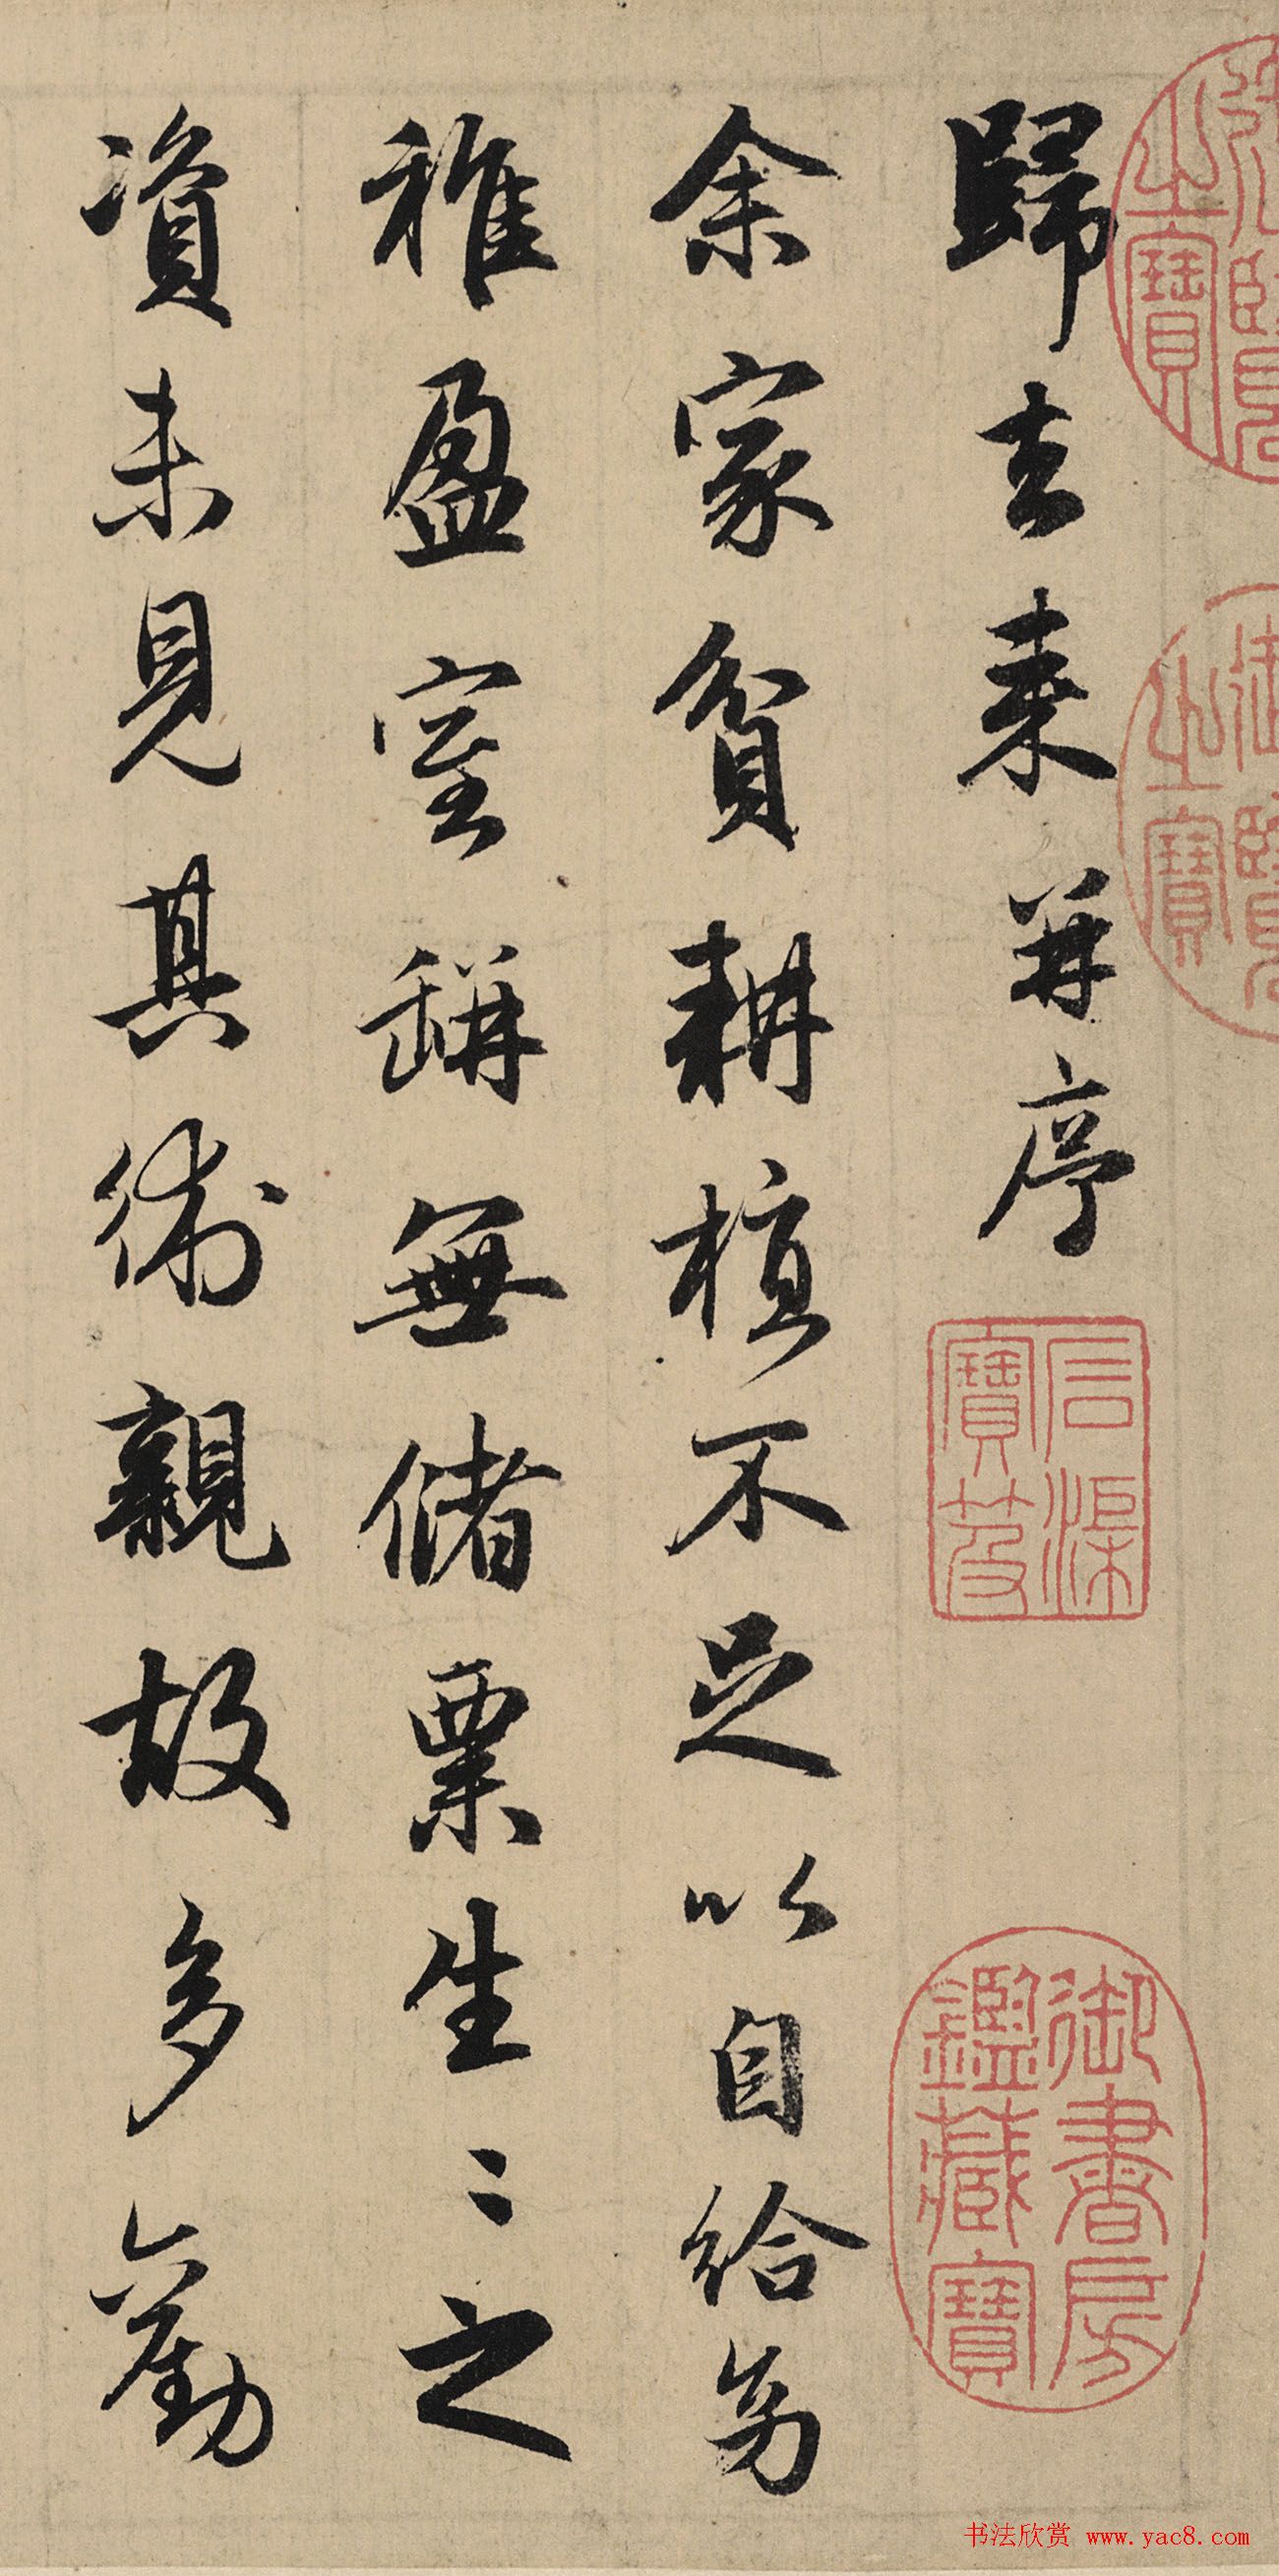 歸去来并序
余家貧耕植不足以自給幼
稚盈室缾無儲粟生〻之
資未見其術親故多勸
御覽之寶
石渠寶笈
御書房鑑藏寶
书法欣赏 www.yac8.com